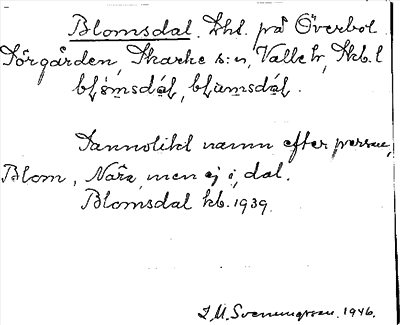 Blomsdal. Lht. på Överbol
Sörgården, Skarke s:n, Valle hd, Skb. l
blômsdál, blumsdál.
Sannolikt namn efter person,
Blom, Nära, men ej i, dal.
Blomsdal kb. 1939.
I. M. Svenungsson. 1946.